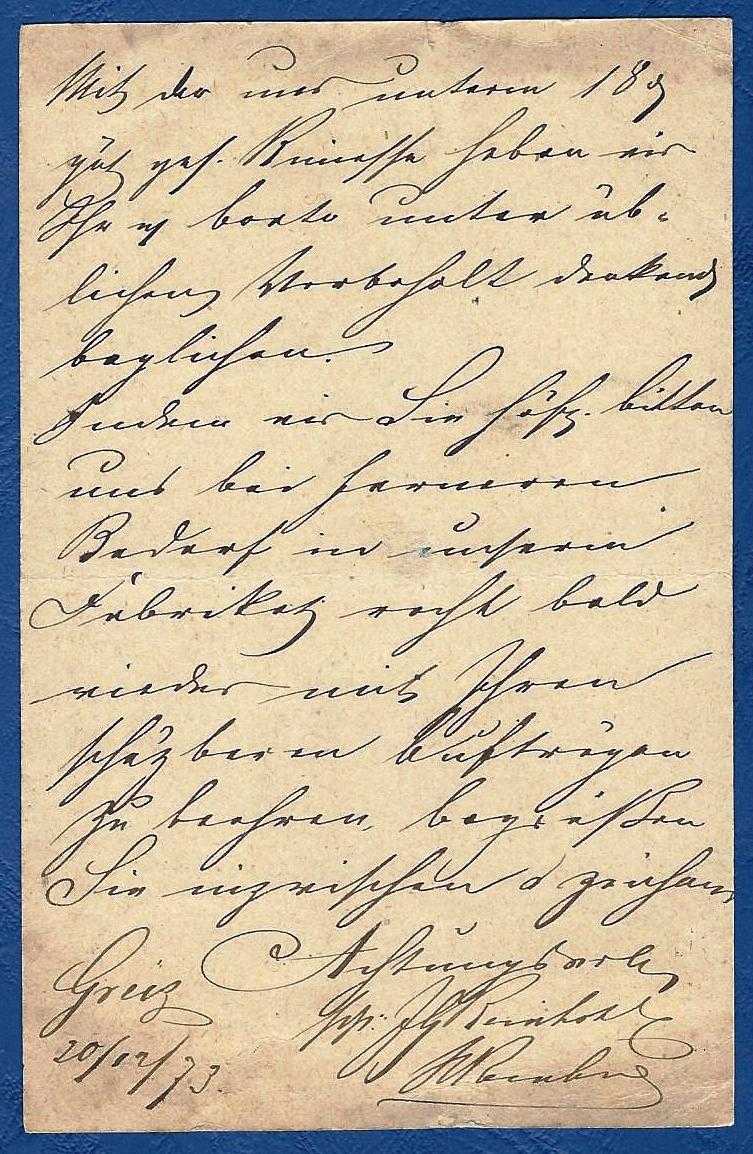 Mit der uns unterm 18 d
gut gef. Rimesse haben wir
Ihr w Conto unter üb-
lichem Vorbehalt dankend
beglichen.
Indem wir Sie höfl. bitten
uns bei ferneren
Bedarf in unserm
Fabrikat recht bald
wieder mit Ihren
schäzbaren Aufträgen
zu beehren, begrüßen
Sie inzwischen & zeichnen
Achtungsvoll
Greiz
JG Reinhold
20/12/73.